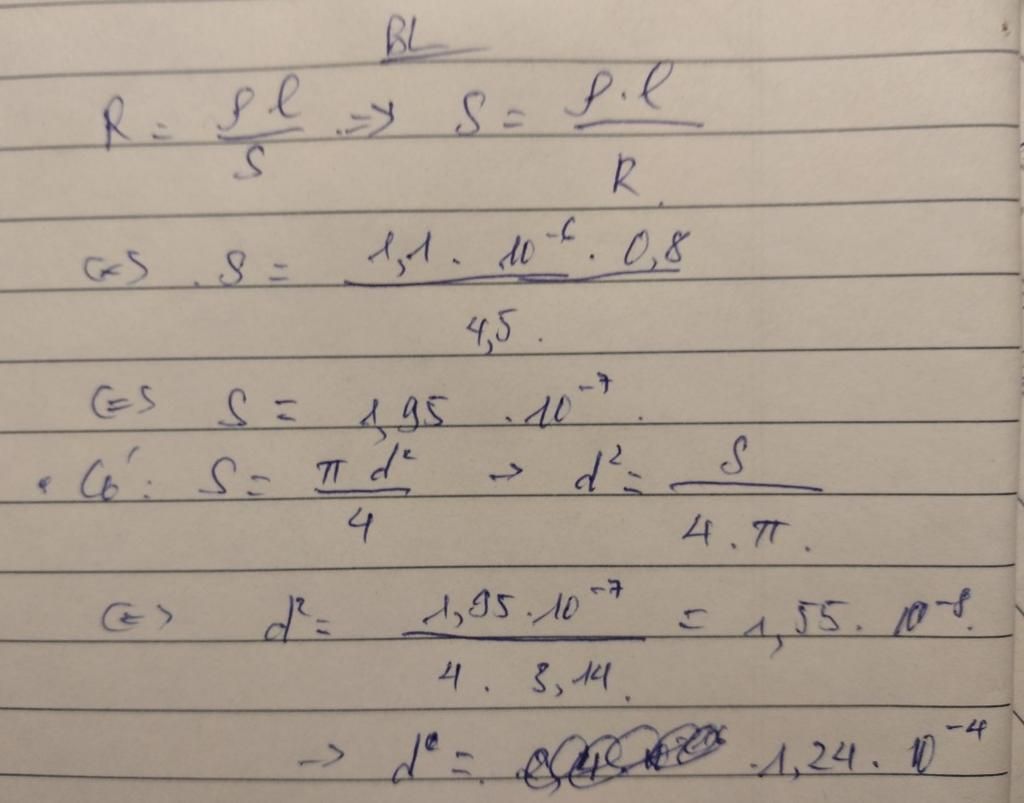 BL
R = ρl/S => S = ρ.l/R.
<=> S = 1,1. 10⁻⁶. 0,8/4,5.
<=> S = 1,95 .10⁻⁷.
• Có: S = πd²/4 → d² = S/4.π.
<=> d² = 1,95.10⁻⁷/4. 3,14. = 1,55. 10⁻⁸.
→ d = 1,24. 10⁻⁴